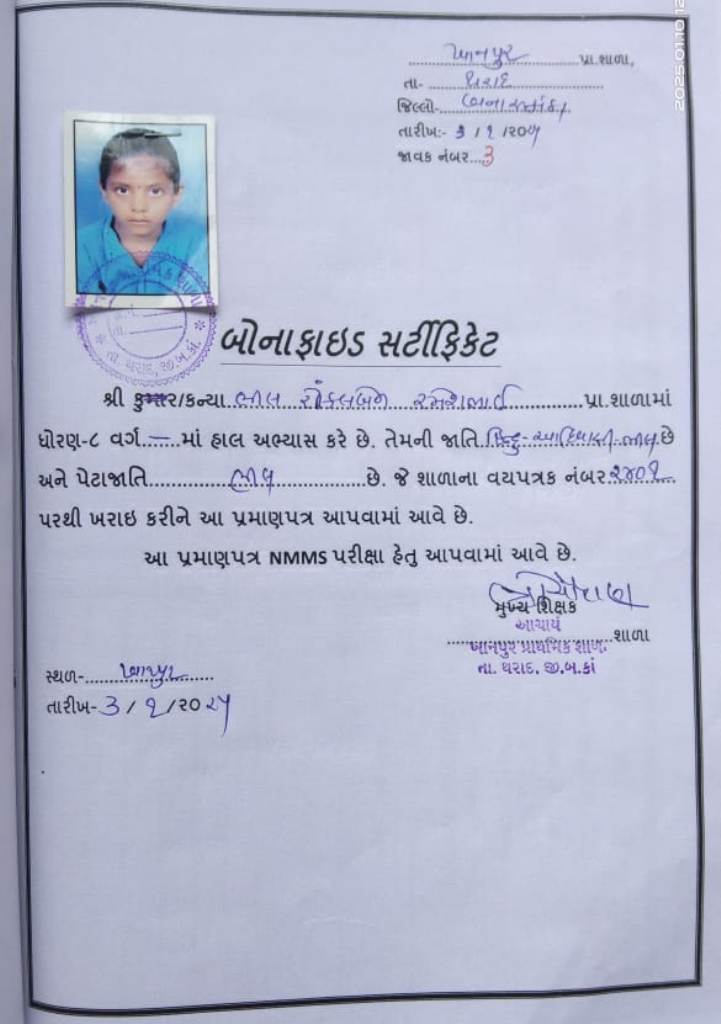 ખાનપુર પ્રા.શાળા,
તા- થરાદ
જિલ્લો- બનાસકાંઠા
તારીખ:- ૩ / ૧ /૨૦૨૫
જાવક નંબર...૩
બોનાફાઇડ સર્ટીફિકેટ
શ્રી કુમાર/કન્યા ભીલ રમેશભાઈ પ્રા.શાળામાં
ધોરણ-૮ વર્ગ.—.માં હાલ અભ્યાસ કરે છે. તેમની જાતિ હિન્દુ-આદિવાસી-ભીલ છે
અને પેટાજાતિ ભીલ છે. જે શાળાના વયપત્રક નંબર ૨૪૦૧
પરથી ખરાઇ કરીને આ પ્રમાણપત્ર આપવામાં આવે છે.
આ પ્રમાણપત્ર NMMS પરીક્ષા હેતુ આપવામાં આવે છે.
મુખ્ય શિક્ષક
આચાર્ય
શાળા
ખાનપુર પ્રાથમિક શાળા
તા. થરાદ, જી.બ.કાં
સ્થળ- ખાનપુર
તારીખ- ૩ / ૧ /૨૦૨૫
તા. થરાદ, જી.બ.કાં.